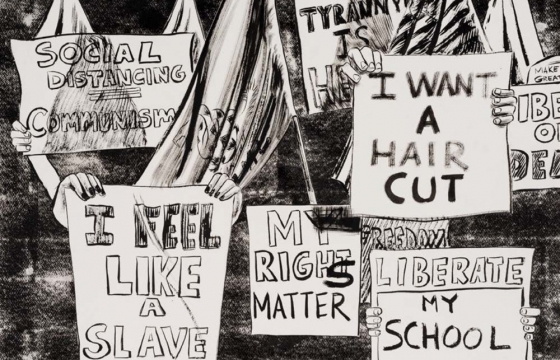 SOCIAL
DISTANCING
=
COMMUNISM
TYRANNY
IS
I WANT
A
HAIR
CUT
MAKE
I FEEL
LIKE
A
SLAVE
MY
RIGHTS
MATTER
FREEDOM
LIBERATE
MY
SCHOOL